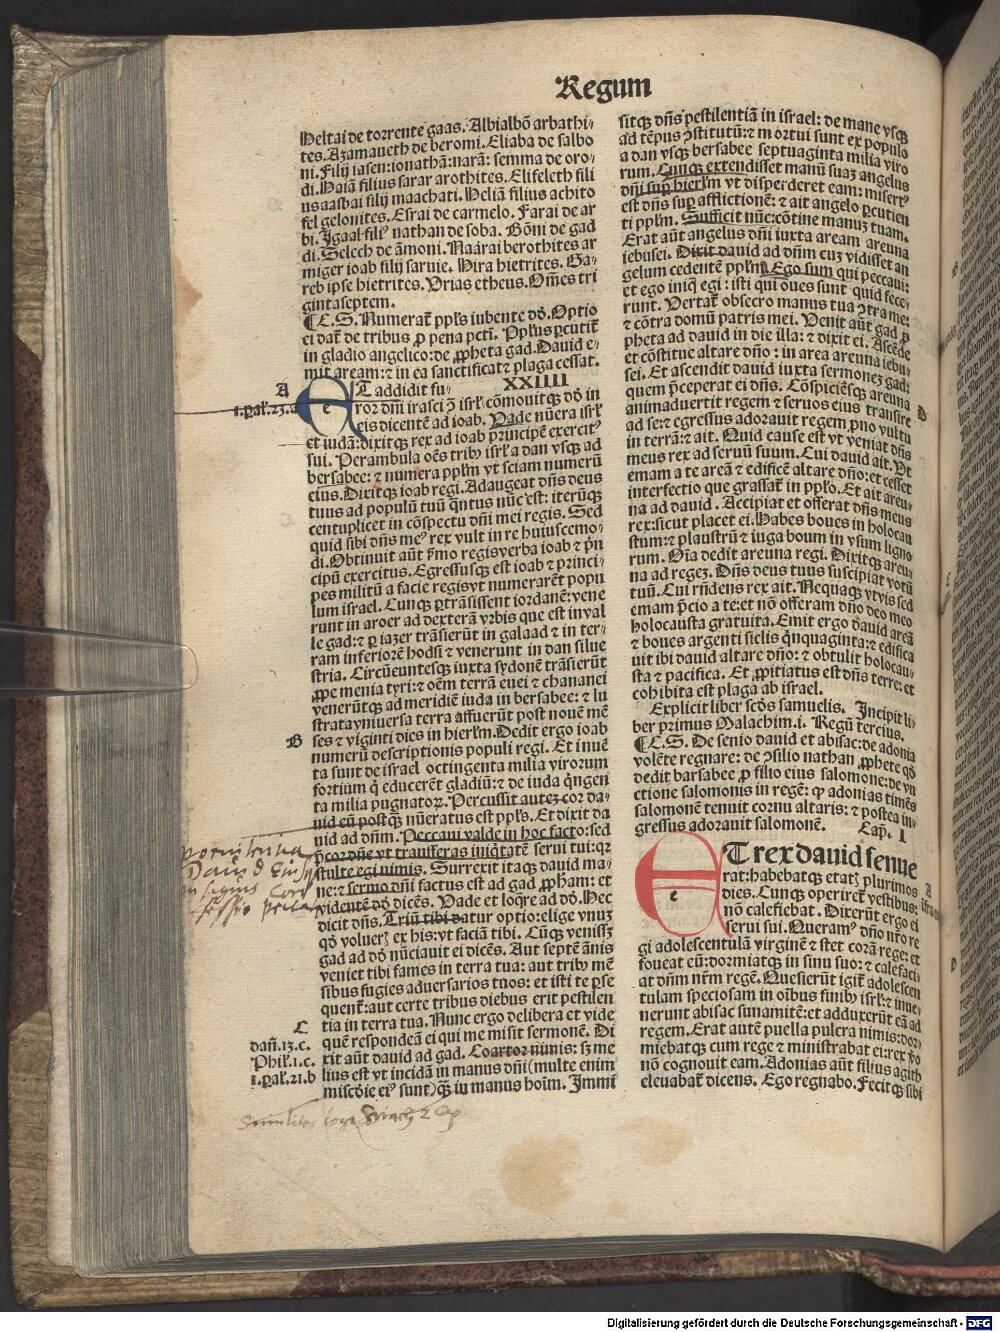 Regum
Heltai de torrente gaas. Albialbõ arbathi-
tes. Azamaueth de beromi. Eliaba de salbo
ni. Filij iasen: ionathã: narã: semma de oro-
di. Haiã filius sarar arothites. Elifeleth fili
us aasbai filij maachati. Heliã filius achito
fel gelonites. Esrai de carmelo. Farai de ar
bi. Igaal filiꝰ nathan de soba. Bõni de gad
di. Selech de ãmoni. Naarai berothites ar
miger ioab filij saruie. Hira hietrites. Ga-
reb ipse hietrites. Urias etheus. Om̃es tri
ginta septem.
¶ E. S. Numerat̃ ppl̃s iubente dõ. Optio
ei dat̃ de tribus ꝓ pena pctĩ. Ppl̃us ꝑcutit̃
in gladio angelico: de ꝓpheta gad. Dauid e-
mit aream: ⁊ in ea sanctificat̃ ⁊ plaga cessat.
A
XXIIII
ET addidit fu-
1. pal̃. 23. a
ror dñi irasci ↄ̃ isrl̃ cõmouitqꝫ dõ in
eis dicentẽ ad ioab. Uade nũera isrl̃
et iudã: dixitqꝫ rex ad ioab principẽ exercitꝰ
sui. Perambula oẽs tribꝰ isrl̃ a dan vsqꝫ ad
bersabee: ⁊ numera ppl̃m vt sciam numerũ
eius. Dixitqꝫ ioab regi. Adaugeat dñs deus
tuus ad populũ tuũ q̃ntus nũc est: iterũqꝫ
centuplicet in cõspectu dñi mei regis. Sed
quid sibi dñs meꝰ rex vult in re huiuscemo-
di. Obtinuit aũt ṽmo regis verba ioab ⁊ p̃n
cipũ exercitus. Egressusqꝫ est ioab ⁊ princi-
pes militũ a facie regis vt numerarẽt popu
lum israel. Cunqꝫ ꝑtrãsissent iordanẽ: vene
runt in aroer ad dexterã vrbis que est in val
le gad: ⁊ ꝑ iazer trãsierũt in galaad ⁊ in ter-
ram inferiorẽ hodsi ⁊ venerunt in dan silue
stria. Circũeuntesqꝫ iuxta sydonẽ trãsierũt
ꝓpe menia tyri: ⁊ oẽm terrã euei ⁊ chananei
venerũtqꝫ ad meridiẽ iuda in bersabee: ⁊ lu
strata vniuersa terra affuerũt post nouẽ mẽ
B
ses ⁊ viginti dies in hierl̃m. Dedit ergo ioab
numerũ descriptionis populi regi. Et inuẽ
ta sunt de israel octingenta milia virorum
fortium q̃ educerẽt gladiũ: ⁊ de iuda q̃ngen
ta milia pugnatoꝝ. Percussit autez cor da-
uid eũ postqꝫ nũeratus est ppl̃s. Et dixit da
uid ad dñm. Peccaui valde in hoc facto: sed
p̃cor dñe vt transferas iniq̃tatẽ serui tui: qꝛ
stulte egi nimis. Surrexit itaqꝫ dauid ma-
ne: ⁊ sermo dñi factus est ad gad ꝓph̃am: et
videntẽ dõ dicẽs. Uade et loq̃re ad dõ. Hec
dicit dñs. Triũ tibi datur optio: elige vnuꝫ
qḋ volueꝝ ex his: vt faciã tibi. Cũqꝫ venissꝫ
gad ad dõ nũciauit ei dicẽs. Aut septẽ ãnis
veniet tibi fames in terra tua: aut tribꝰ mẽ
sibus fugies aduersarios tuos: et isti te ꝑse
quent̃: aut certe tribus diebus erit pestilen
C
tia in terra tua. Nunc ergo delibera et vide
dañ. 13. c.
quẽ respondeã ei qui me misit sermonẽ. Di
Phil̃. 1. c.
xit aũt dauid ad gad. Coartor nimis: sꝫ me
1. pal̃. 21. b
lius est vt incidã in manus dñi (multe enim
miscḋie eiꝰ sunt) qꝫ in manus hoĩm. Immi
sitqꝫ dñs pestilentiã in israel: de mane vsqꝫ
ad tẽpus ↄ̃stitutũ: ⁊ mortui sunt ex populo
a dan vsqꝫ bersabee septuaginta milia viro
rum. Cunqꝫ extendisset manũ suaꝫ angelus
dñi suꝑ hierl̃m vt disperderet eam: misertꝰ
est dñs suꝑ afflictionẽ: ⁊ ait angelo ꝑcutien
ti ppl̃m. Sufficit nũc: cõtine manuꝫ tuam.
Erat aũt angelus dñi iuxta aream areuna
iebusei. Dixit dauid ad dñm cuꝫ vidisset an
gelum cedentẽ ppl̃m. Ego sum qui peccaui:
et ego iniq̃ egi: isti qui oues sunt quid fece-
runt. Uertat̃ obsecro manus tua ↄ̃tra me:
⁊ cõtra domũ patris mei. Uenit aũt gad ꝓ
pheta ad dauid in die illa: ⁊ dixit ei. Ascẽde
et cõstitue altare dño: in area areuna iebu-
sei. Et ascendit dauid iuxta sermoneꝫ gad:
quem p̃ceperat ei dñs. Cõspiciẽsqꝫ areuna
animaduertit regem ⁊ seruos eius transire
D
ad se: ⁊ egressus adorauit regem ꝓno vultu
in terrã: ⁊ ait. Quid cause est vt veniat dñs
meus rex ad seruũ suum. Cui dauid ait. Ut
emam a te areã ⁊ edificẽ altare dño: et cesset
interfectio que grassat̃ in ppl̃o. Et ait areu-
na ad dauid. Accipiat et offerat dñs meus
rex: sicut placet ei. Habes boues in holocau
stum: ⁊ plaustrũ ⁊ iuga boum in vsum ligno
rum. Oĩa dedit areuna regi. Dixitqꝫ areu-
na ad regeꝫ. Dñs deus tuus suscipiat votũ
tuũ. Cui rñdens rex ait. Nequaqꝫ vt vis sed
emam p̃cio a te: et nõ offeram dño deo meo
holocausta gratuita. Emit ergo dauid areã
⁊ boues argenti siclis q̃nquaginta: ⁊ edifica
uit ibi dauid altare dño: ⁊ obtulit holocau-
sta ⁊ pacifica. Et ꝓpitiatus est dñs terre: et
cohibita est plaga ab israel.
Explicit liber scḋs samuelis. Incipit li-
ber primus Malachim. i. Regũ tercius.
¶ E. S. De senio dauid et abisac: de adonia
volẽte regnare: de ↄ̃silio nathan ꝓphete qḋ
dedit barsabee ꝓ filio eius salomone: de vn
ctione salomonis in regẽ: ꝙ adonias timẽs
salomonẽ tenuit cornu altaris: ⁊ postea in-
gressus adorauit salomonẽ. Cap. I
ET rex dauid senue
rat: habebatqꝫ etatꝭ plurimos
A
dies. Cunqꝫ operiret̃ vestibus:
nõ calefiebat. Dixerũt ergo ei
serui sui. Queramꝰ dño nr̃o re
gi adolescentulã virginẽ ⁊ stet corã rege: et
foueat eũ: dormiatqꝫ in sinu suo: ⁊ calefaci-
at dñm nr̃m regẽ. Quesierũt igit̃ adolescen
tulam speciosam in oĩbus finibꝰ isrl̃: ⁊ inue-
nerunt abisac sunamitẽ: et adduxerũt eã ad
regem. Erat autẽ puella pulcra nimis: dor-
miebatqꝫ cum rege ⁊ ministrabat ei: rex ṽo
nõ cognouit eam. Adonias aũt filius agith
eleuabat̃ dicens. Ego regnabo. Fecitqꝫ sibi
Digitalisierung gefördert durch die Deutsche Forschungsgemeinschaft - DFG